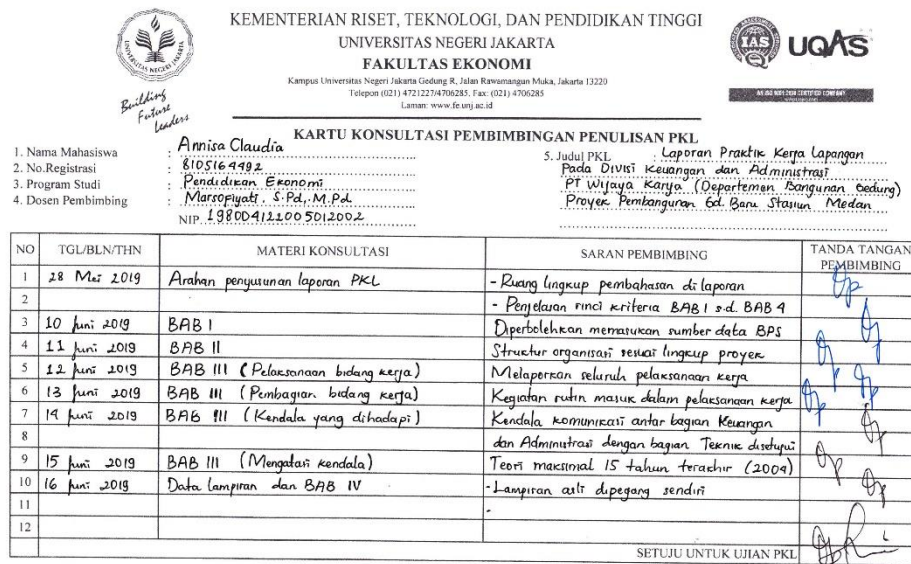 KEMENTERIAN RISET, TEKNOLOGI, DAN PENDIDIKAN TINGGI
UNIVERSITAS NEGERI JAKARTA
FAKULTAS EKONOMI
Kampus Universitas Negeri Jakarta Gedung R, Jalan Rawamangun Muka, Jakarta 13220
Telepon (021) 4721227/4706285, Fax: (021) 4706285
Laman: www.fe.unj.ac.id
Building
Future
Leaders
IAS
UQAS
KARTU KONSULTASI PEMBIMBINGAN PENULISAN PKL
1. Nama Mahasiswa : Annisa Claudia
2. No.Registrasi : 8105164492
3. Program Studi : Pendidikan Ekonomi
4. Dosen Pembimbing : Marsofiyati, S.Pd., M.Pd.
NIP. 198004122005012002
5. Judul PKL : Laporan Praktik Kerja Lapangan
Pada Divisi Keuangan dan Administrasi
PT Wijaya Karya (Departemen Bangunan Gedung)
Proyek Pembangunan Gd. Baru Stasiun Medan
NO TGL/BLN/THN MATERI KONSULTASI SARAN PEMBIMBING TANDA TANGAN PEMBIMBING
1 28 Mei 2019 Arahan penyusunan laporan PKL - Ruang lingkup pembahasan di laporan
2 - Penjelasan rinci kriteria BAB 1 s.d. BAB 4
3 10 Juni 2019 BAB I Diperbolehkan memasukan sumber data BPS
4 11 Juni 2019 BAB II Struktur organisasi sesuai lingkup proyek
5 12 Juni 2019 BAB III (Pelaksanaan bidang kerja) Melaporkan seluruh pelaksanaan kerja
6 13 Juni 2019 BAB III (Pembagian bidang kerja) Kegiatan rutin masuk dalam pelaksanaan kerja
7 14 Juni 2019 BAB III (Kendala yang dihadapi) Kendala komunikasi antar bagian Keuangan
8 dan Administrasi dengan bagian Teknik disetujui
9 15 Juni 2019 BAB III (Mengatasi kendala) Teori maksimal 15 tahun terakhir (2004)
10 16 Juni 2019 Data lampiran dan BAB IV - Lampiran asli dipegang sendiri
11 -
12
SETUJU UNTUK UJIAN PKL